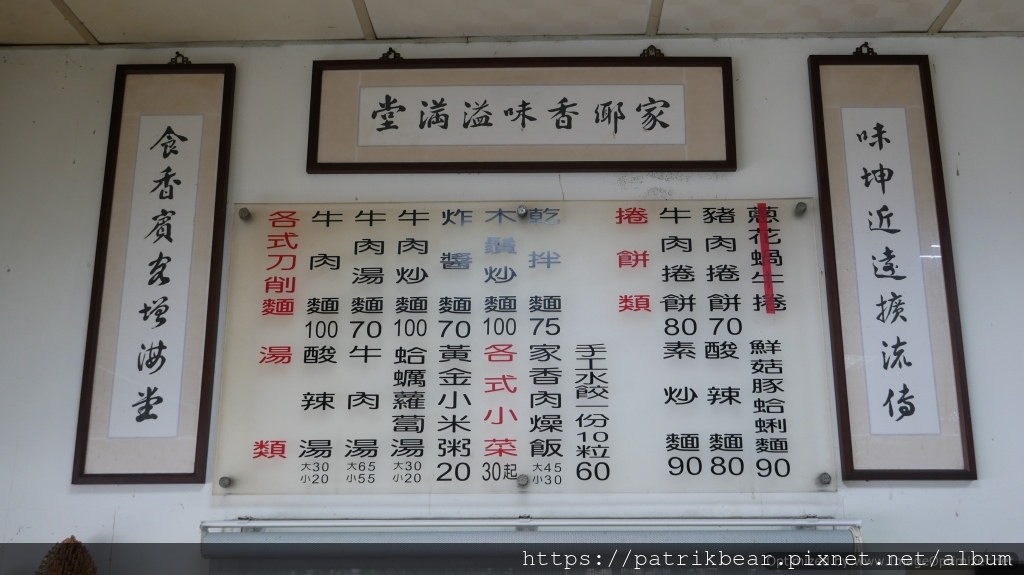 家鄉香味溢滿堂
味坤近遠擴流傳
食香賓客增滿堂
各式刀削麵
牛肉麵100
牛肉湯麵70
牛肉炒麵100
炸醬麵70
木鬚炒麵100
乾拌麵75
捲餅類
牛肉捲餅80
豬肉捲餅70
蔥花蝸牛捲
湯類
酸辣湯 大30 小20
牛肉湯 大65 小55
蛤蠣蘿蔔湯 大30 小20
黃金小米粥20
各式小菜30起
家香肉燥飯 大45 小30
手工水餃一份10粒60
素炒麵90
酸辣麵80
鮮菇豚蛤蜊麵90
https://patrikbear.pixnet.net/album